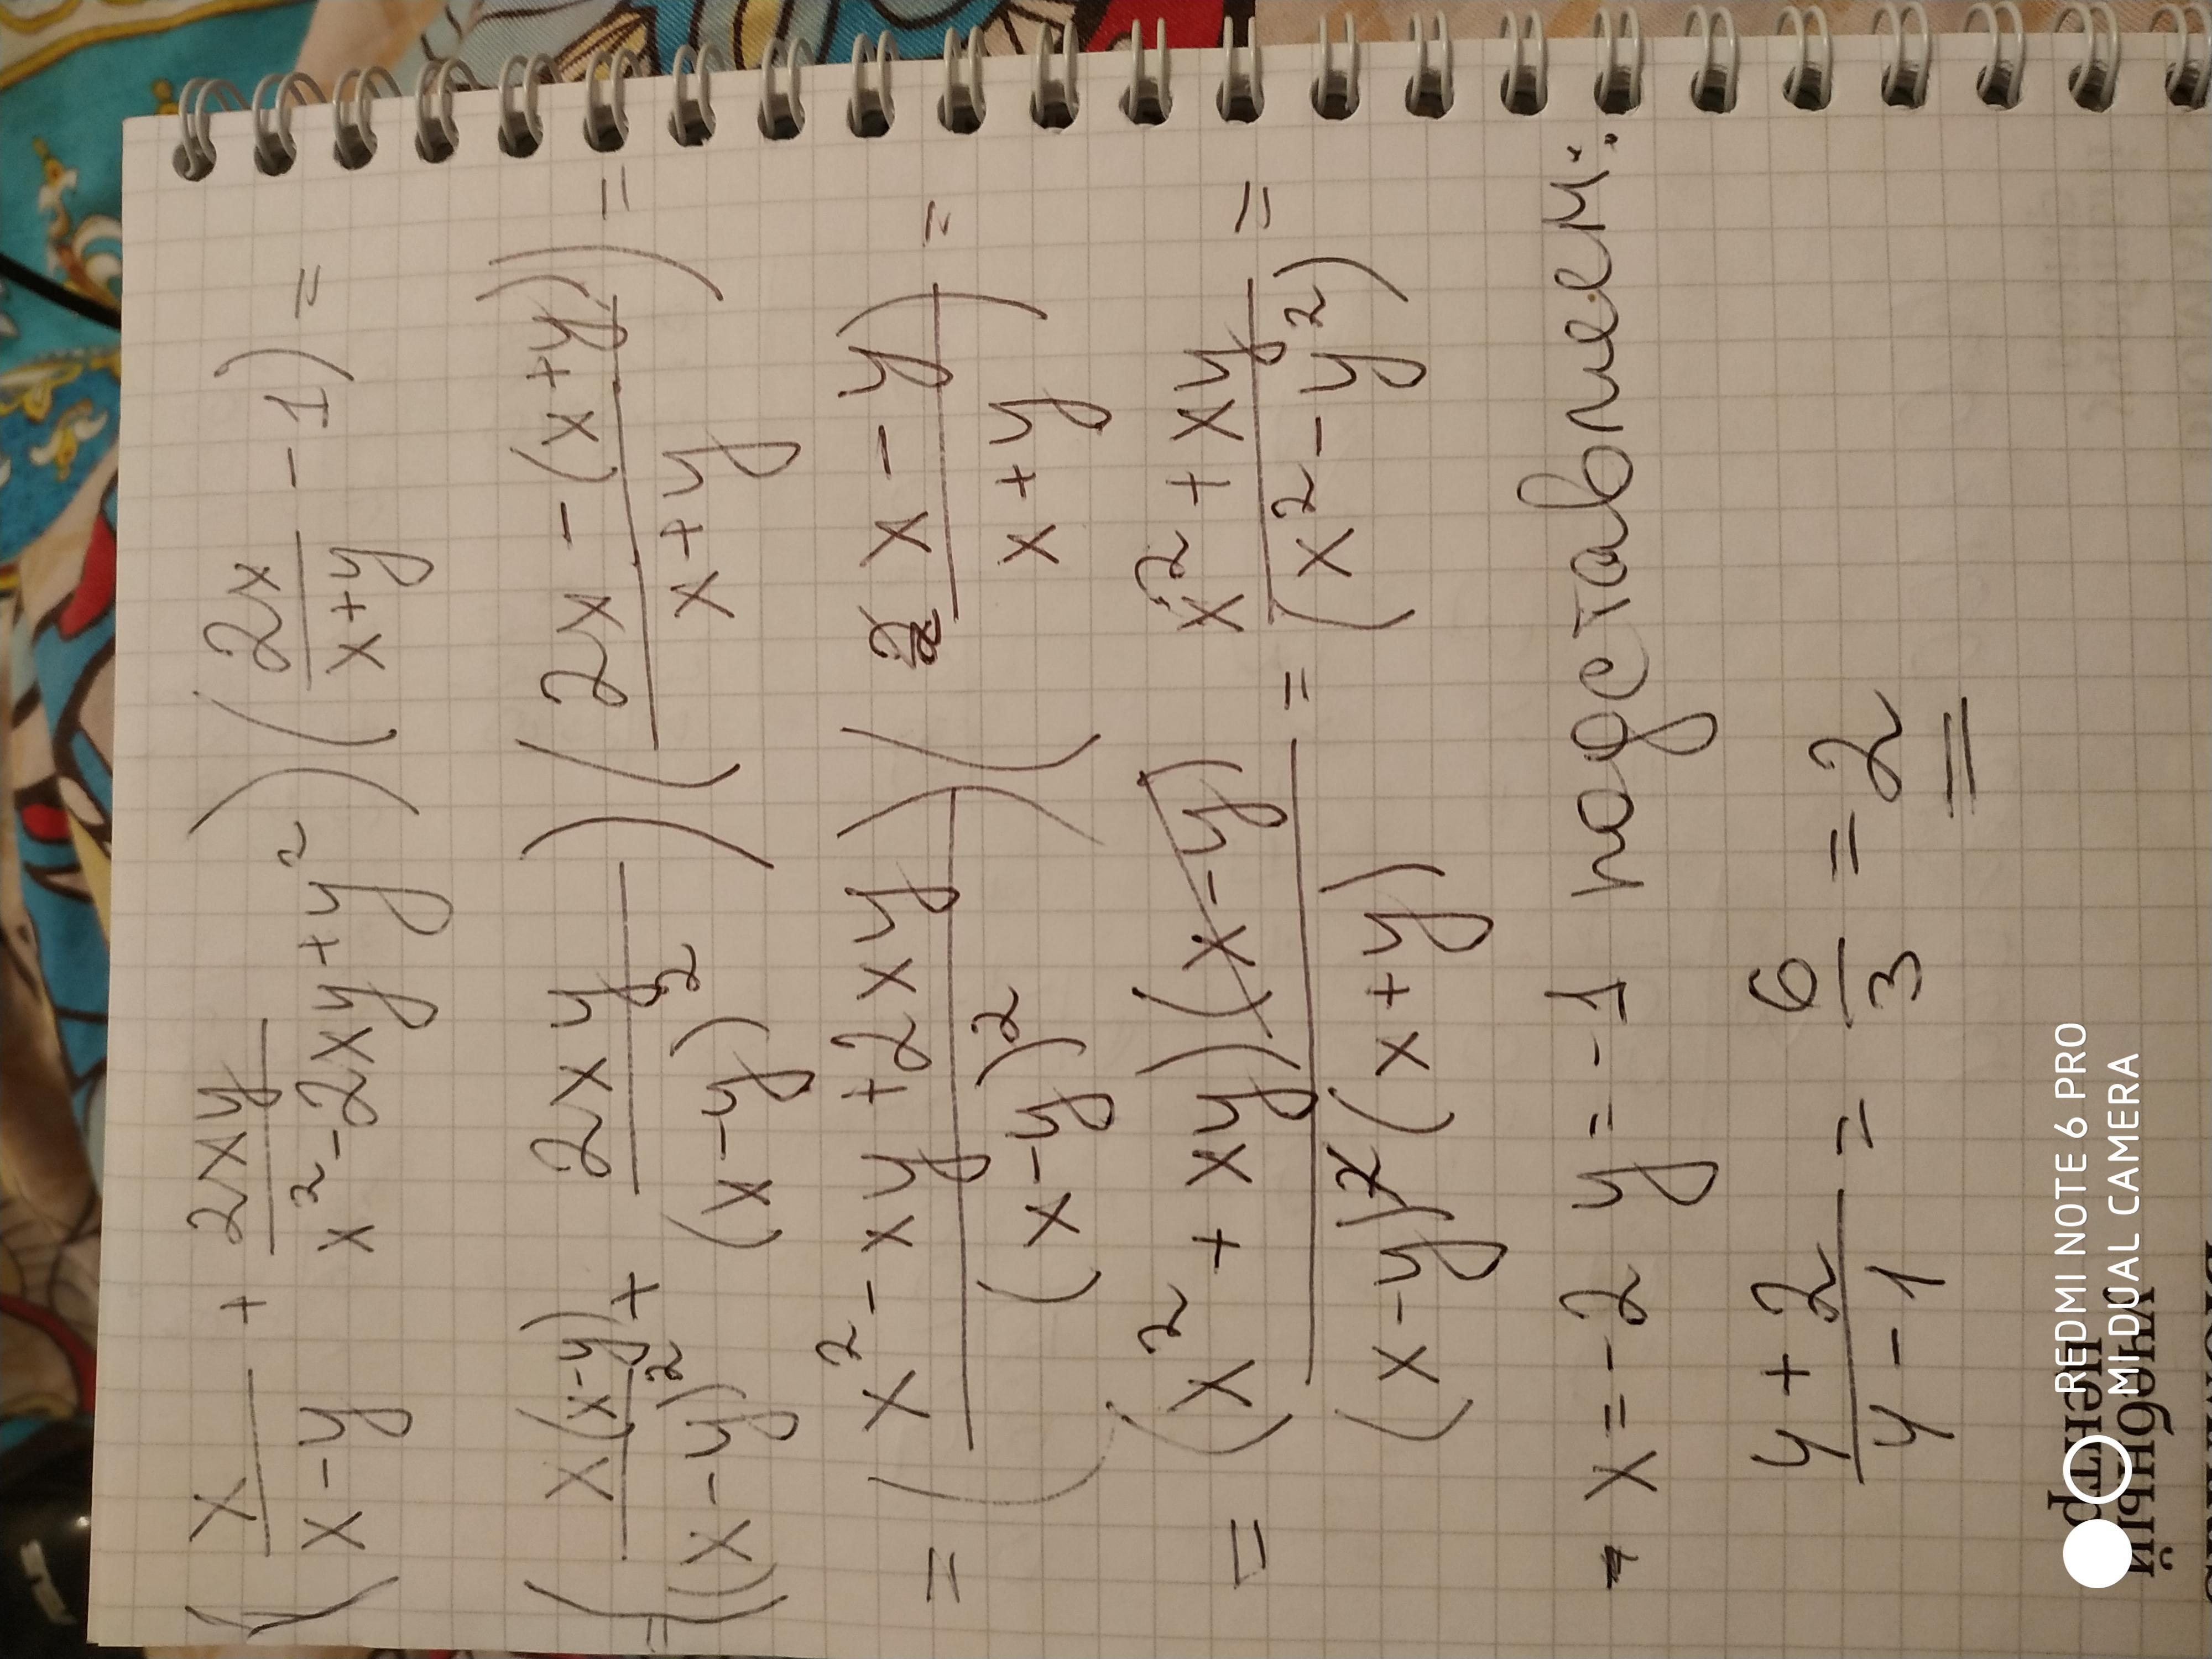 ( x/(x-y) + 2xy/(x²-2xy+y²) ) ( 2x/(x+y) - 1) =
= ( x(x-y)/(x-y)² + 2xy/(x-y)² ) ( (2x-(x+y))/(x+y) ) =
= ( (x²-xy+2xy)/(x-y)² ) ( (x-y)/(x+y) ) =
= (x²+xy)(x-y)/((x-y)²(x+y)) = (x²+xy)/(x²-y²) =
x=-2 y=-1 подставляем:
(4+2)/(4-1) = 6/3 = 2
REDMI NOTE 6 PRO
MI DUAL CAMERA